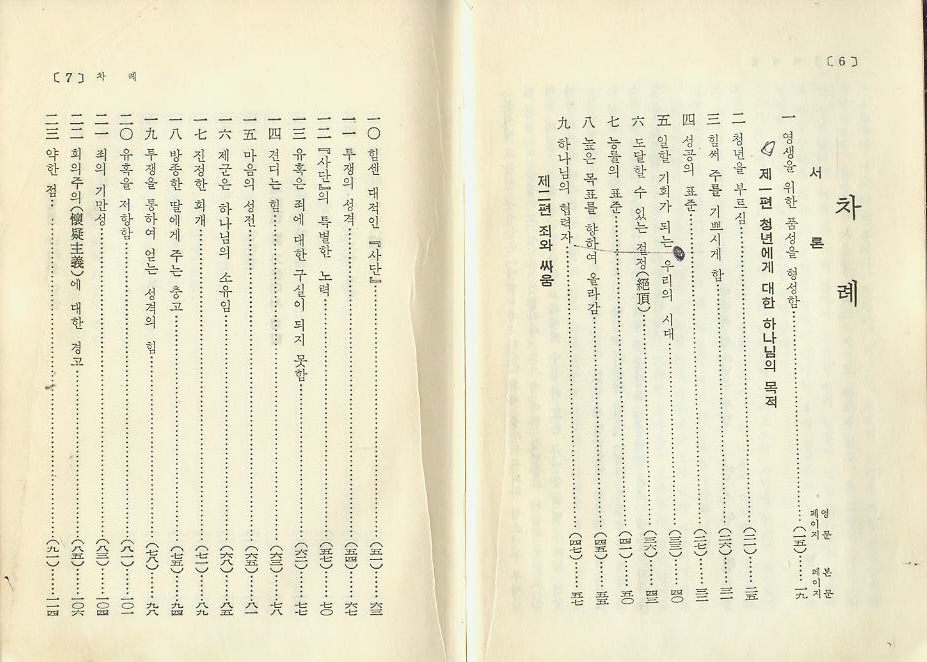 〔6〕
차 례
영문 페이지 본문 페이지
서 론
一 영생을 위한 품성을 형성함 (一五) 一九
제一편 청년에게 대한 하나님의 목적
二 청년을 부르심 (二一) 二五
三 힘써 주를 기쁘시게 함 (二六) 三一
四 성공의 표준 (二七) 三三
五 일할 기회가 되는 우리의 시대 (三三) 四〇
六 도달할 수 있는 절정(絕頂) (三六) 四三
七 능률의 표준 (四一) 五〇
八 높은 목표를 향하여 올라감 (四五) 五五
九 하나님의 협력자 (四七) 五七
제二편 죄와 싸움
〔7〕 차 례
一〇 힘센 대적인 『사단』 (五二) 六三
一一 투쟁의 성격 (五四) 六七
一二 『사단』의 특별한 노력 (五七) 七〇
一三 유혹은 죄에 대한 구실이 되지 못함 (六二) 七七
一四 견디는 힘 (六三) 七八
一五 마음의 성전 (六五) 八一
一六 제군은 하나님의 소유임 (六八) 八五
一七 진정한 회개 (七一) 八九
一八 방종한 딸에게 주는 충고 (七五) 九四
一九 투쟁을 통하여 얻는 성격의 힘 (七八) 九八
二〇 유혹을 저항함 (八一) 一〇一
二一 죄의 기만성 (八三) 一〇四
二二 회의주의(懷疑主義)에 대한 경고 (八五) 一〇六
二三 약한 점 (九一) 一一四